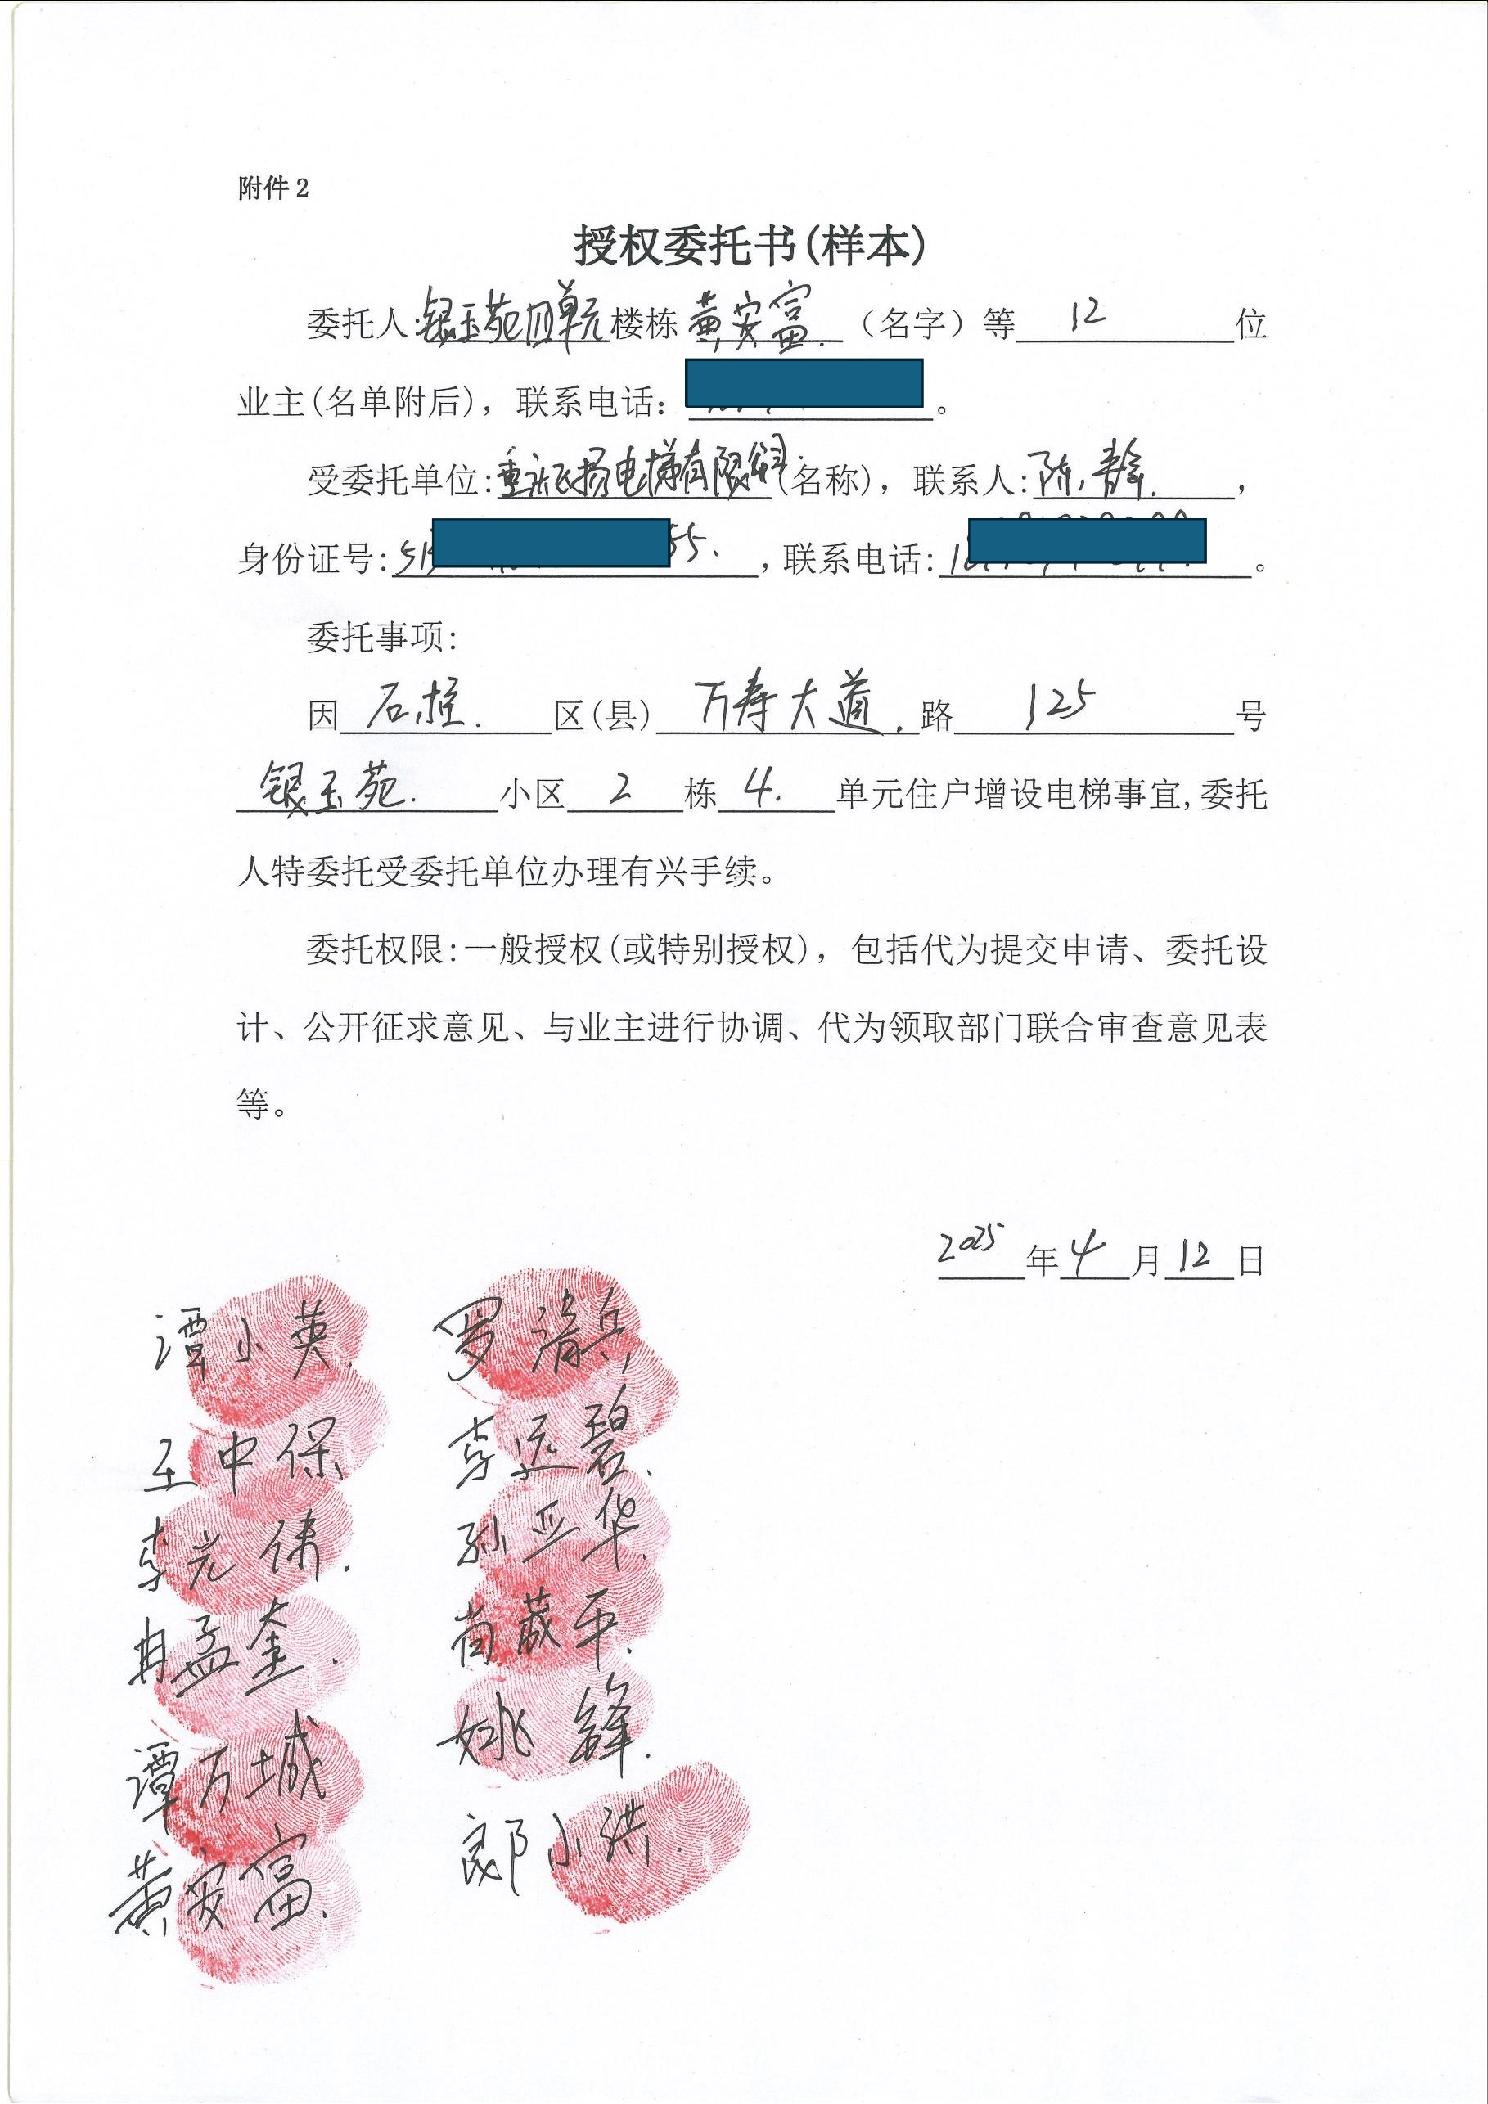 附件2
授权委托书(样本)
委托人:银玉苑四单元楼栋黄安富.（名字）等12位
业主(名单附后)，联系电话:。
受委托单位:重庆飞扬电梯有限公司(名称)，联系人:陈静.，
身份证号:55.，联系电话:。
委托事项:
因石柱.区(县)万寿大道.路125号
银玉苑.小区2栋4.单元住户增设电梯事宜,委托
人特委托受委托单位办理有兴手续。
委托权限:一般授权(或特别授权)，包括代为提交申请、委托设
计、公开征求意见、与业主进行协调、代为领取部门联合审查意见表
等。
2025年4月12日
谭小英. 罗清兵
王中保 李远碧.
李光伟. 孙亚华.
冉孟奎. 平.
谭万城 姚锋.
黄安富. 郎小洪.